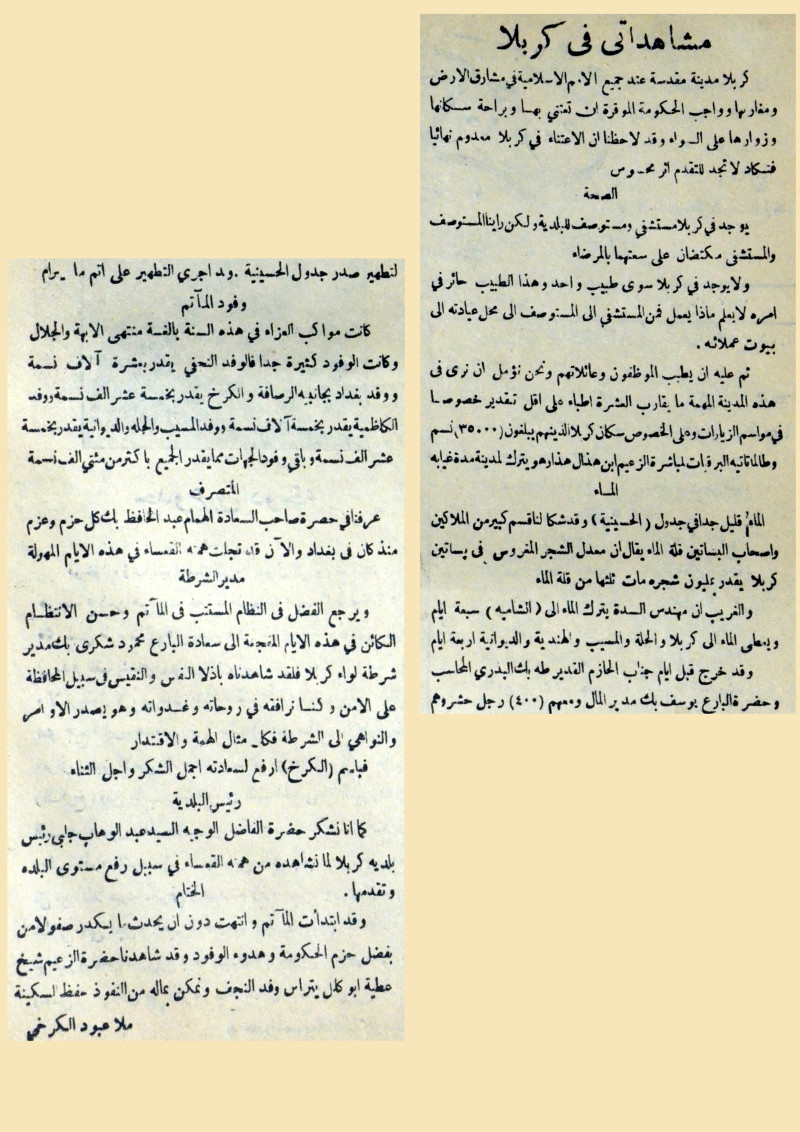 مشاهداتي في كربلا
كربلا مدينة مقدسة عند جميع الامم الاسلامية في مشارق الارض
ومغاربها وواجب الحكومة الموقرة ان تعتني بهـا وبراحة سـكانها
وزوارها على السواء وقد لاحظنا ان الاعتناء في كربلا معدوم نهائيا
فنكاد لا تجد للتقدم اثر محسوس
الصحة
يوجد في كربلا مستشفى ومستوصف للبلدية ولكن راينا المستوصف
والمستشفى مكتضان على سعتهما بالمرضاء
ولا يوجد في كربلا سوى طبيب واحد وهذا الطبيب حائر في
امره لا يعلم ماذا يعمل فمن المستشفى الى المستوصف الى محل عيادته الى
بيوت عملائه .
ثم عليه ان يطبب الموظفون وعائلاتهم ونحن نؤمل ان نرى في
هذه المدينة المهمة ما يقارب العشرة اطباء على اقل تقدير خصوصـا
في مواسم الزيارات وعلى الخصوص سكان كربلا الذينهم يبلغون (٣٥٠٠٠) نسم
وطالما تاتيه البرقيات لمباشرة الزعيم ابن هذال هذا وهو يترك لمدينة مدة غيابه
المـاء
الماء قليل جدا في جدول (الحسينية) وقد شكا لنا قسم كبير من الملاكين
واصحاب البساتين قلة الماء يقال ان معدل الشجر المغروس في بساتين
كربلا يقدر بمليون شجره مات ثلثها من قلة الماء
والغريب ان مهندس السدة يترك الماء الى (الشاميه) سبعة ايام
ويعطى الماء الى كربلا والحلة والمسيب والهندية والديوانية اربعة ايام
وقد خرج قبل ايام جناب الحازم القدير طه بك البدري المحاسب
وحضرة البارع يوسف بك مدير المال ومعهم (٤٠٠) رجل حشروهم
لتطهير صدر جدول الحسينية . وقد اجري التطهير على اتم ما يرام
وفود المآتم
كانت مواكب العزاء في هذه السنة بالغة منتهى الابهة والجلال
وكانت الوفود كثيرة جدا فالوفد النجفي يقدر بعشرة آلاف نسمة
ووفد بغداد بجانبيه الرصافة والكرخ يقدر بخمسة عشر الف نسمة ووفد
الكاظمية يقدر بخمسة آلاف نسمة ووفد المسيب والحله والديوانية يقدر بخمسة
عشر الف نسمة وباقي وفود الجهات مما يقدر الجميع باكثر من مئتي الف نسمة
المتصرف
عرفنا في حضرة صاحب السعادة الهمام عبد الحافظ بك كل حزم وعزم
منذ كان في بغداد والآن قد تجلت همته القعساء في هذه الايام المهولة
مدير الشرطة
ويرجع الفضل في النظام المستتب في المآتم وحسن الانتظـام
الكائن في هذه الايام الى سعادة البارع محمود شكري بك مدير
شرطة لواء كربلا فلقد شاهدناه باذلا النفس والنفيس في سبيل المحافظة
على الامن وكنا نرافقه في روحاته وغدواته وهو يصدر الاوامر
والنواهي الى الشرطة فكان مثال الهمة والاقتدار
فباسم (الكرخ) ارفع لسعادته اجمل الشكر واجل الثناء
رئيس البلدية
كما انا نشكر حضرة الفاضل الوجيه السيد عبد الوهاب جلبي رئيس
بلديه كربلا لما نشاهده من همته القعساء في سبيل رفع مستوى البلده
وتقدمها .
الختام
وقد ابتدأت المآتم وانتهت دون ان يحدث ما يكدر صفو الامن
بفضل حزم الحكومة وهدوء الوفود وقد شاهدنا حضرة الزعيم شيخ
عطية ابو كلل يتراس وفد النجف وتمكن بماله من النفوذ حفظ السكينة
ملا عبود الكرخي